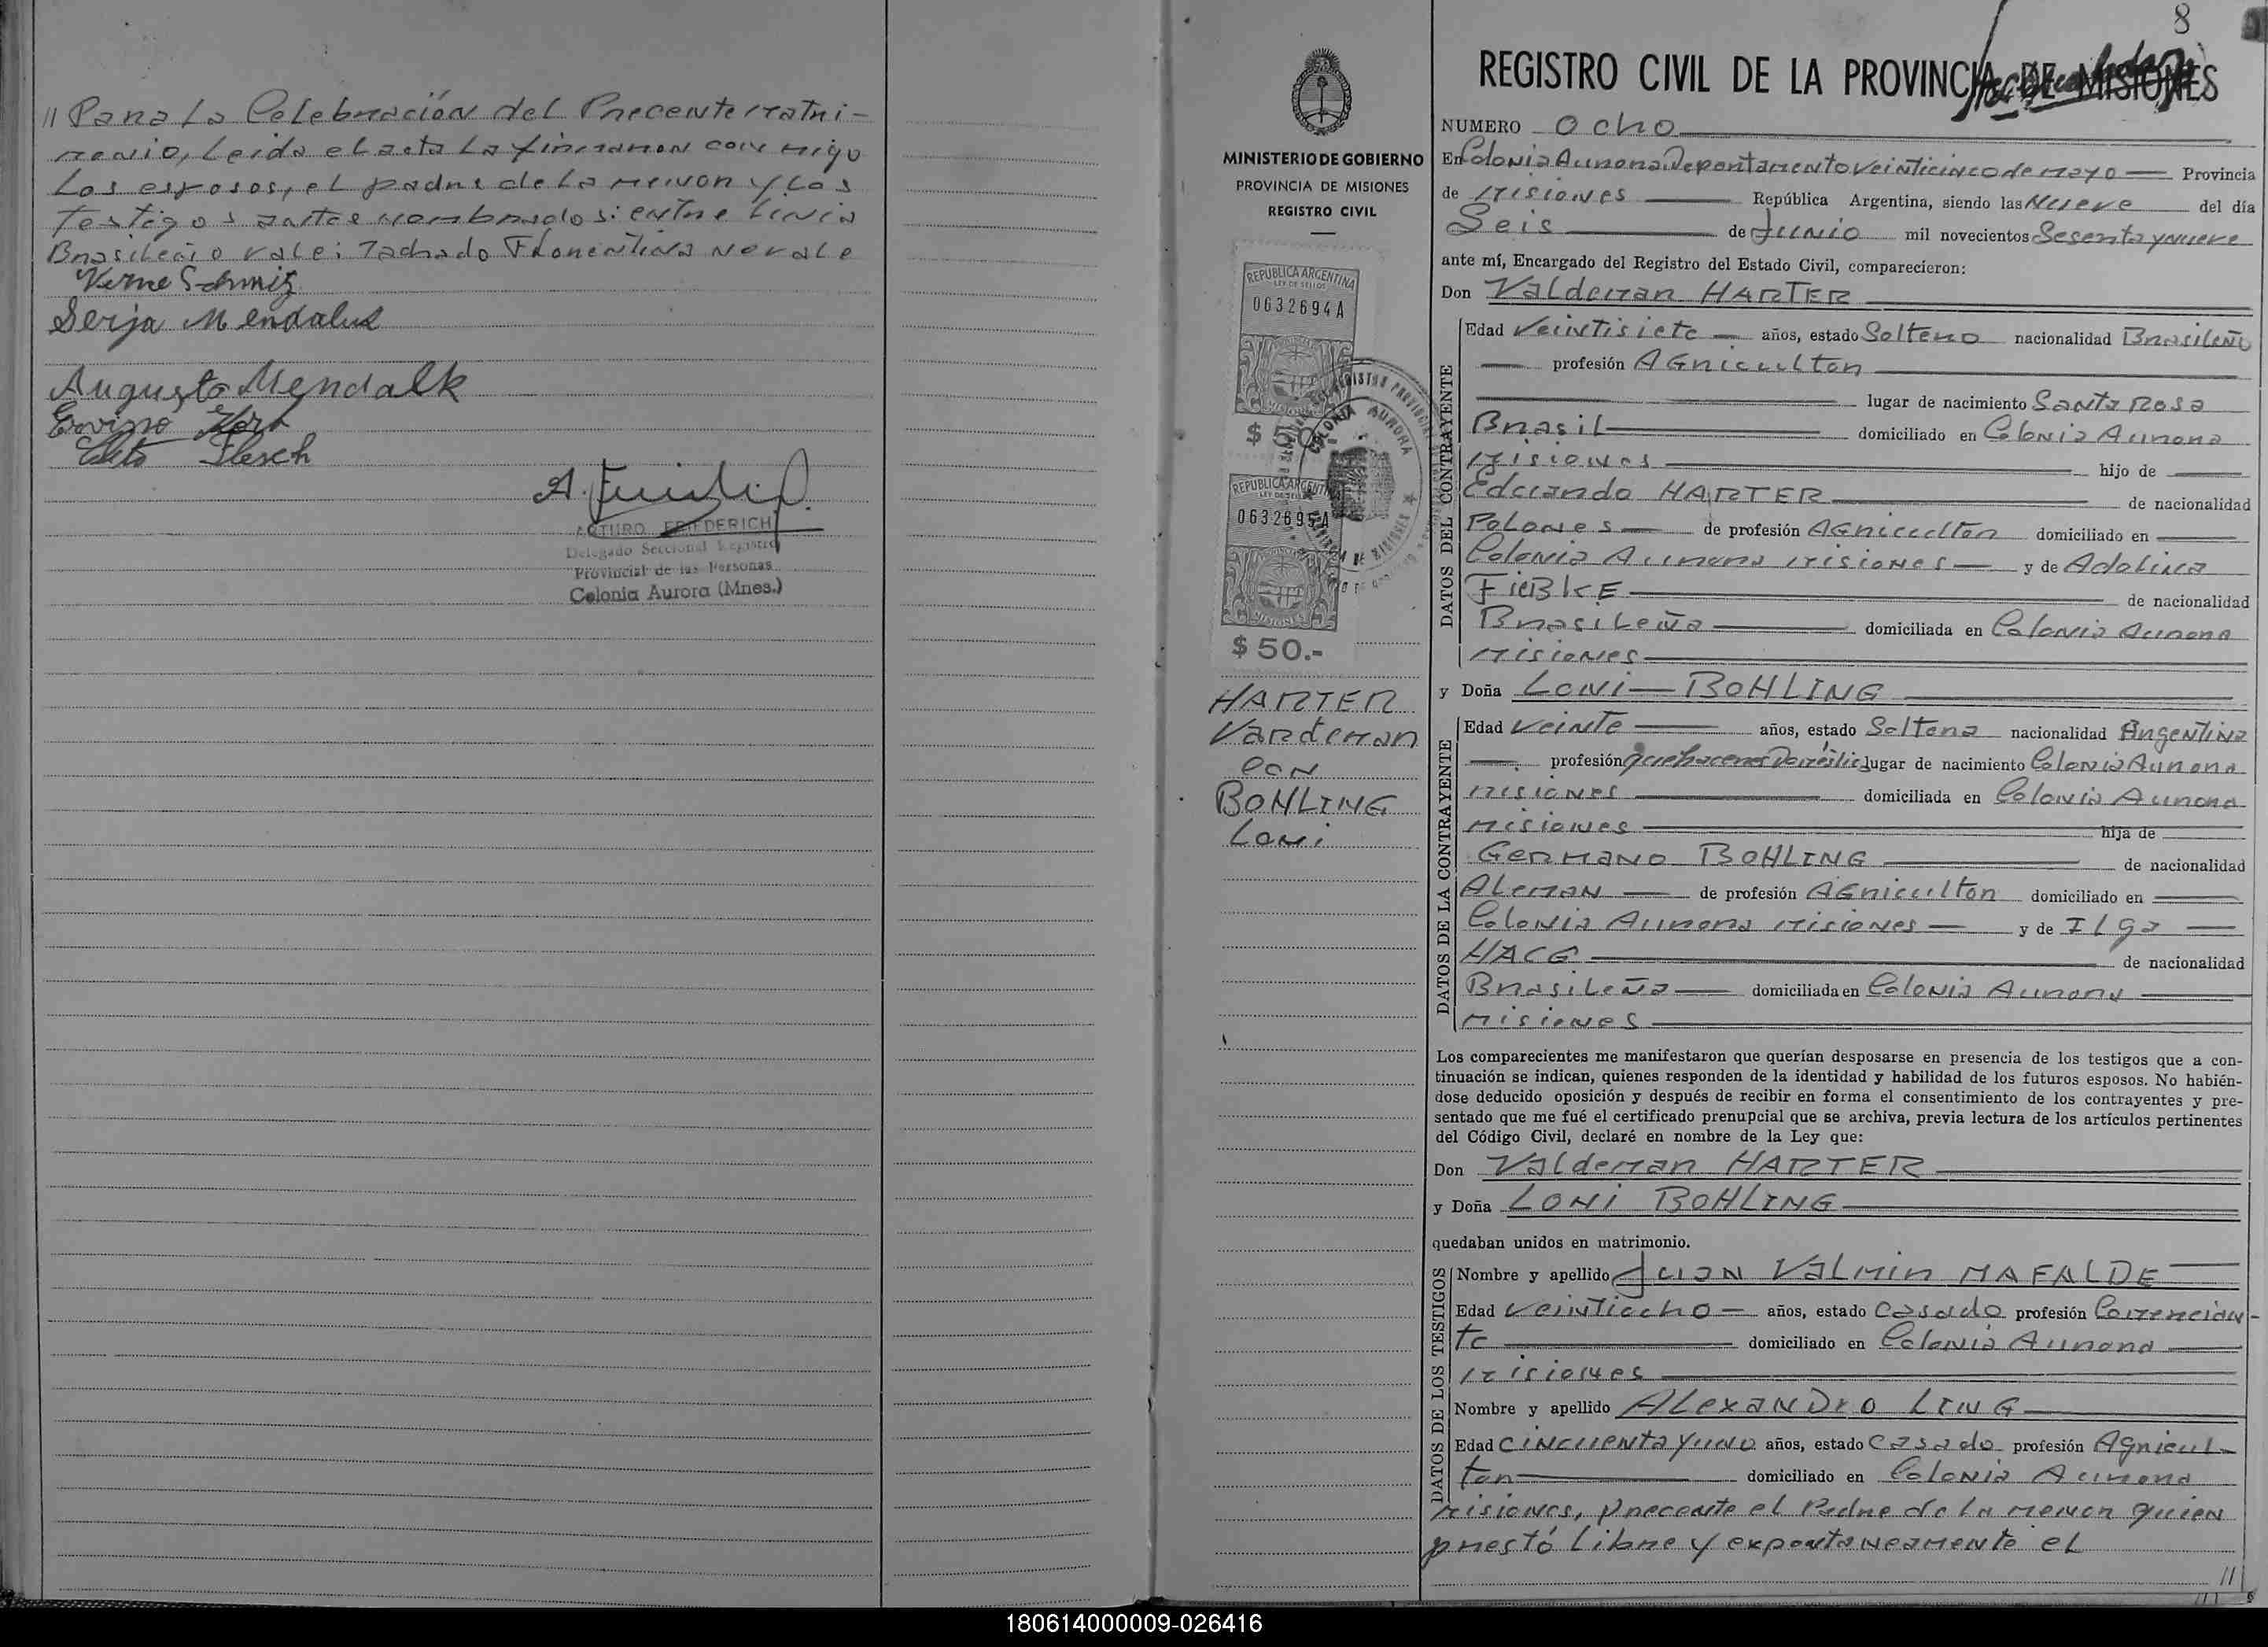 // Para la Celebración del Precente matri-
monio, leida el acta la firmaron con migo
los esposos, el padre de la menor y los
testigos antes nombrados: entre linia
Brasileño vale: Tachado Florentina no vale
Verne Schmitz
Serja Mendaluk
Augusto Mendalk
Ervino
Flesch
ARTURO FRIEDERICH
Delegado Seccional Registro
Provincial de las Personas
Colonia Aurora (Mnes.)
8
REGISTRO CIVIL DE LA PROVINCIA DE MISIONES
MINISTERIO DE GOBIERNO
PROVINCIA DE MISIONES
REGISTRO CIVIL
REPUBLICA ARGENTINA
LEY DE SELLOS
0632694A
MISIONES
$ 50.-
COLONIA AURORA
REPUBLICA ARGENTINA
LEY DE SELLOS
0632695A
MISIONES
$ 50.-
HARTER
Valdemar
con
BOHLING
Loni
NUMERO Ocho
En Colonia Aurora Departamento Veinticinco de mayo Provincia
de Misiones República Argentina, siendo las Nueve del día
Seis de Junio mil novecientos Sesenta y nueve
ante mí, Encargado del Registro del Estado Civil, comparecieron:
Don Valdemar HARTER
DATOS DEL CONTRAYENTE
Edad Veintisiete años, estado Soltero nacionalidad Brasileño
profesión Agricultor
lugar de nacimiento Santa Rosa
Brasil domiciliado en Colonia Aurora
Misiones hijo de
Eduardo HARTER de nacionalidad
Polones de profesión Agricultor domiciliado en
Colonia Aurora Misiones y de Adelina
FIEBKE de nacionalidad
Brasileña domiciliada en Colonia Aurora
Misiones
y Doña Loni BOHLING
DATOS DE LA CONTRAYENTE
Edad Veinte años, estado Soltera nacionalidad Argentina
profesión quehaceres Domésticos lugar de nacimiento Colonia Aurora
Misiones domiciliada en Colonia Aurora
Misiones hija de
Germano BOHLING de nacionalidad
Aleman de profesión Agricultor domiciliado en
Colonia Aurora Misiones y de Ilga
HACG de nacionalidad
Brasileña domiciliada en Colonia Aurora
Misiones
Los comparecientes me manifestaron que querían desposarse en presencia de los testigos que a con-
tinuación se indican, quienes responden de la identidad y habilidad de los futuros esposos. No habién-
dose deducido oposición y después de recibir en forma el consentimiento de los contrayentes y pre-
sentado que me fué el certificado prenupcial que se archiva, previa lectura de los artículos pertinentes
del Código Civil, declaré en nombre de la Ley que:
Don Valdemar HARTER
y Doña LONI BOHLING
quedaban unidos en matrimonio.
DATOS DE LOS TESTIGOS
Nombre y apellido Juan Valmir MAFALDE
Edad Veintiocho años, estado Casado profesión Comercian-
te domiciliado en Colonia Aurora
Misiones
Nombre y apellido ALEXANDRO LING
Edad Cincuenta y uno años, estado Casado profesión Agricul-
tor domiciliado en Colonia Aurora
Misiones, precente el Padre de la menor quien
prestó libre y expontaneamente el
///
180614000009-026416